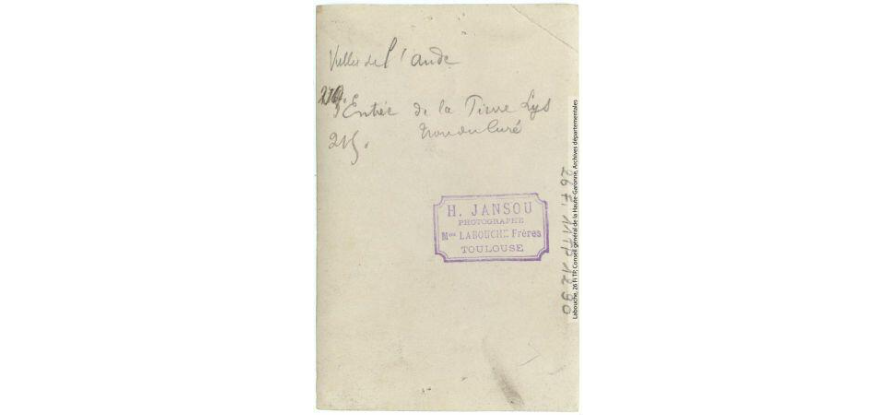 Vallée de l'Aude
219. Entrée de la Pierre Lys
Trou du Curé
215.
H. JANSOU
PHOTOGRAPHE
Mon LABOUCHE Frères
TOULOUSE
26 Fi 11 TP 1290
Labouche, 26 Fi TP, Conseil général de la Haute-Garonne, Archives départementales